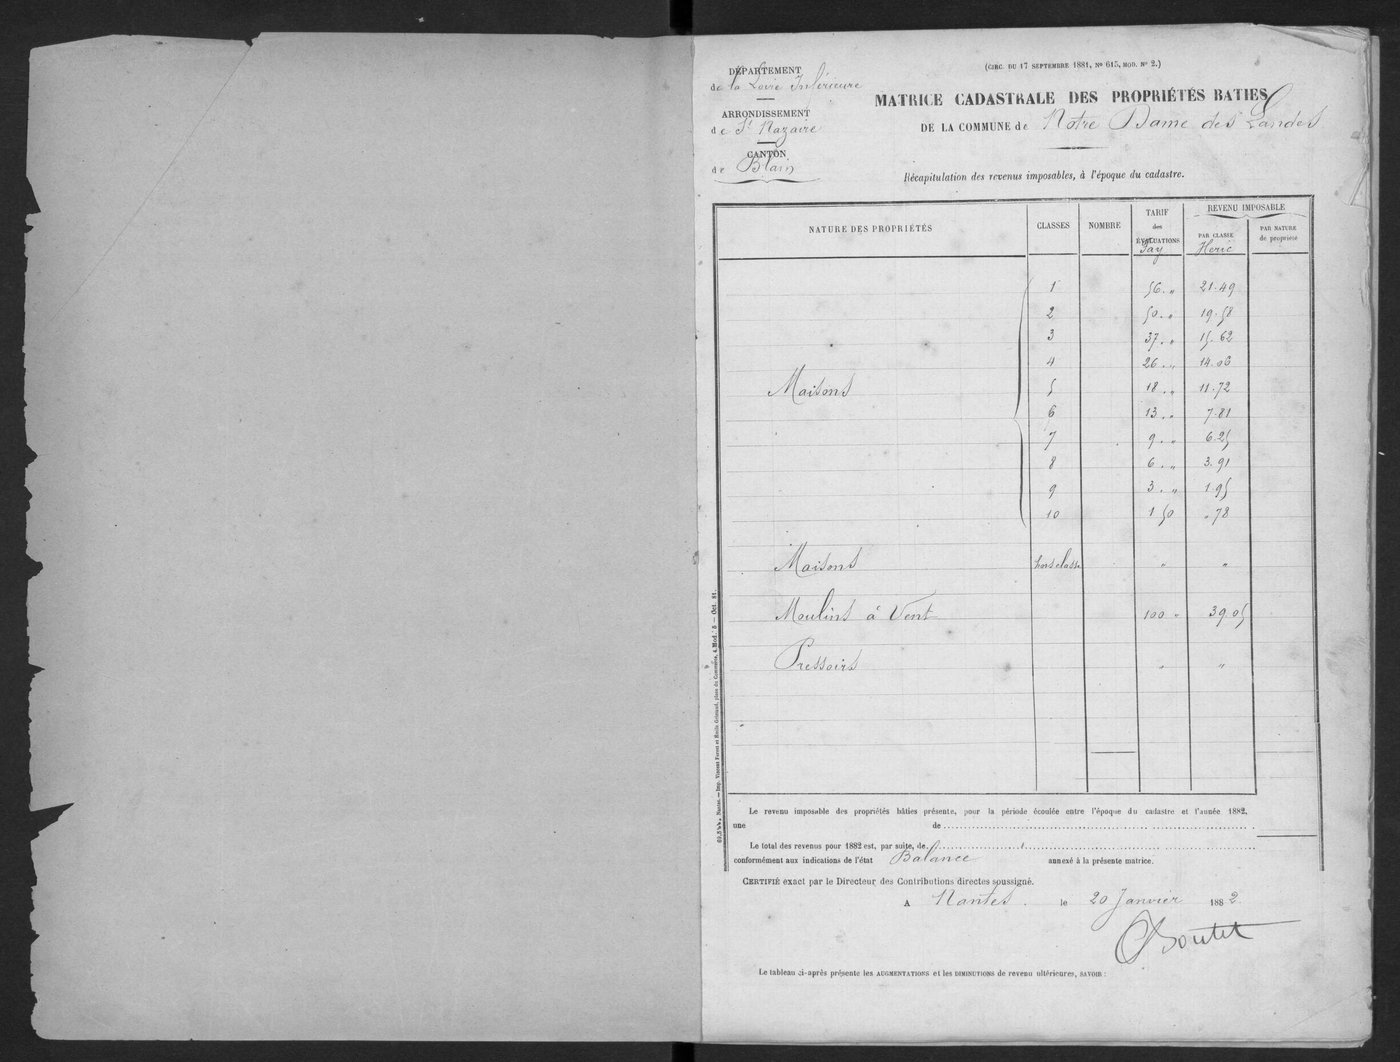 (CIRC. DU 17 SEPTEMBRE 1881, Nº 615, MOD. Nº 2.)
DÉPARTEMENT
de la Loire Inférieure
ARRONDISSEMENT
de St Nazaire
CANTON
de Blain
MATRICE CADASTRALE DES PROPRIÉTÉS BATIES
DE LA COMMUNE de Notre Dame des Landes
Récapitulation des revenus imposables, à l'époque du cadastre.
NATURE DES PROPRIÉTÉS CLASSES NOMBRE TARIF des ÉVALUATIONS REVENU IMPOSABLE
PAR CLASSE PAR NATURE de propriété
Fay Heric
1 56. " 21.49
2 50. " 19.58
3 37. " 15.62
4 26. " 14.06
Maisons 5 18. " 11.72
6 13. " 7.81
7 9. " 6.25
8 6. " 3.91
9 3. " 1.95
10 1 50 " 78
Maisons hors classe " "
Moulins à Vent 100 " 39.05
Pressoirs " "
Nantes. — Imp. Vincent Forest et Émile Grimaud, place du Commerce, 4. Mod. 5 — Oct. 81.
Le revenu imposable des propriétés bâties présente, pour la période écoulée entre l'époque du cadastre et l'année 1882,
une de
Le total des revenus pour 1882 est, par suite, de
conformément aux indications de l'état Balance annexé à la présente matrice.
CERTIFIÉ exact par le Directeur des Contributions directes soussigné.
A Nantes. le 20 Janvier 1882.
Boutet
Le tableau ci-après présente les AUGMENTATIONS et les DIMINUTIONS de revenu ultérieures, SAVOIR :